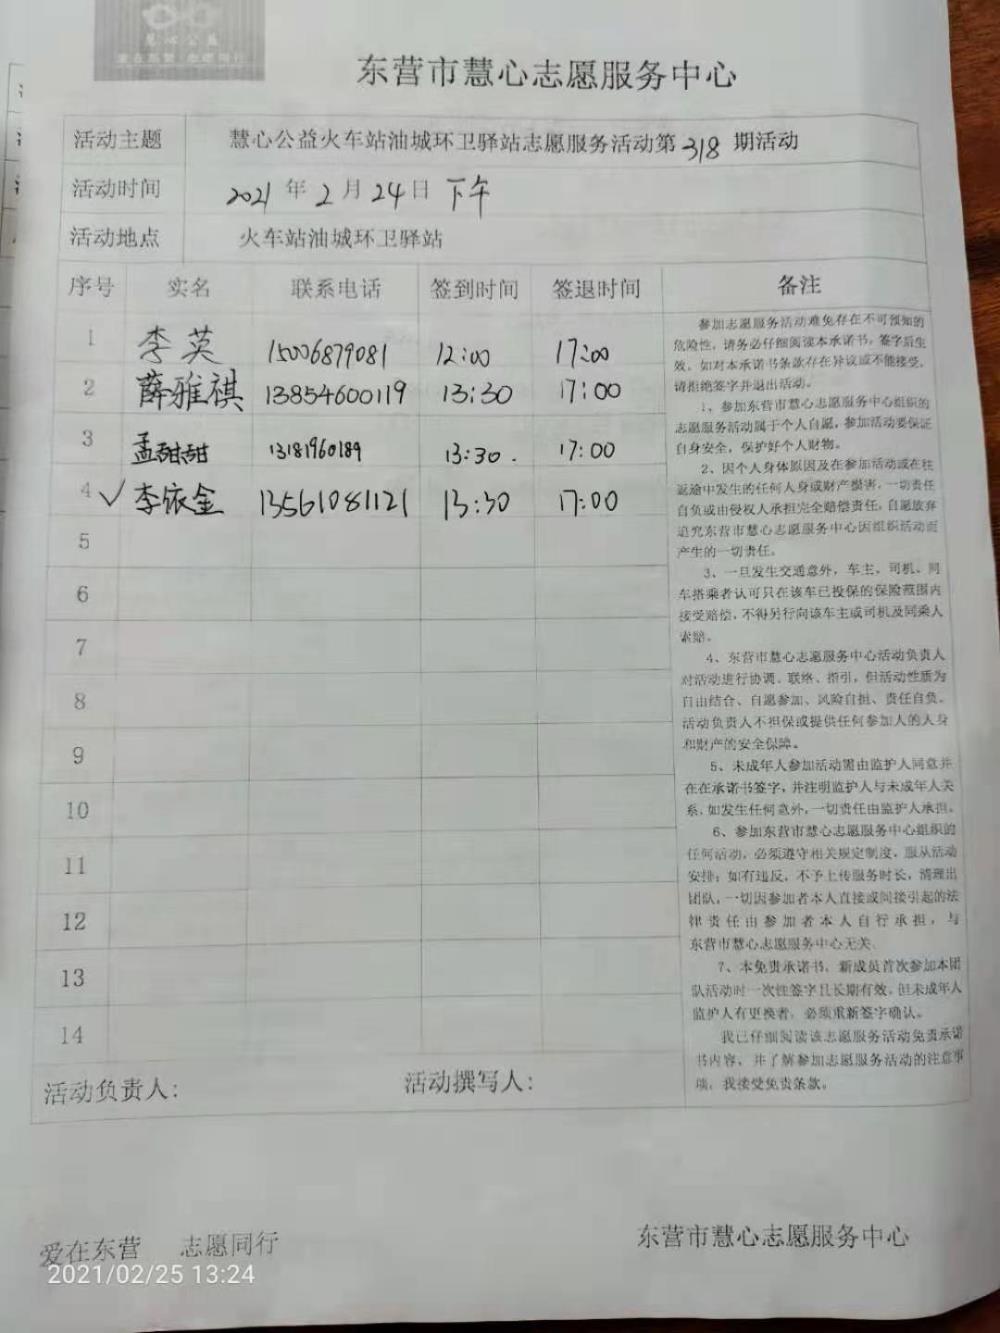 慧心公益
爱在东营 志愿同行
东营市慧心志愿服务中心
活动主题 慧心公益火车站油城环卫驿站志愿服务活动第318期活动
活动时间 2021年2月24日下午
活动地点 火车站油城环卫驿站
序号 实名 联系电话 签到时间 签退时间 备注
1 李英 15006879081 12:00 17:00
2 薛雅祺 13854600119 13:30 17:00
3 孟甜甜 13181960189 13:30. 17:00
4 ✓李依金 13561081121 13:30 17:00
5
6
7
8
9
10
11
12
13
14
参加志愿服务活动难免存在不可预知的
危险性，请务必仔细阅读本承诺书，签字后生
效，如对本承诺书条款存在异议或不能接受，
请拒绝签字并退出活动。
1、参加东营市慧心志愿服务中心组织的
志愿服务活动属于个人自愿，参加活动要保证
自身安全，保护好个人财物。
2、因个人身体原因及在参加活动或在往
返途中发生的任何人身或财产损害，一切责任
自负或由侵权人承担完全赔偿责任，自愿放弃
追究东营市慧心志愿服务中心因组织活动而
产生的一切责任。
3、一旦发生交通意外，车主，司机、同
车搭乘者认可只在该车已投保的保险范围内
接受赔偿，不得另行向该车主或司机及同乘人
索赔。
4、东营市慧心志愿服务中心活动负责人
对活动进行协调、联络、指引，但活动性质为
自由结合、自愿参加、风险自担、责任自负。
活动负责人不担保或提供任何参加人的人身
和财产的安全保障。
5、未成年人参加活动需由监护人同意并
在在承诺书签字，并注明监护人与未成年人关
系，如发生任何意外，一切责任由监护人承担。
6、参加东营市慧心志愿服务中心组织的
任何活动，必须遵守相关规定制度，服从活动
安排；如有违反，不予上传服务时长，清理出
团队，一切因参加者本人直接或间接引起的法
律责任由参加者本人自行承担，与
东营市慧心志愿服务中心无关。
7、本免责承诺书，新成员首次参加本团
队活动时一次性签字且长期有效，但未成年人
监护人有更换者，必须重新签字确认。
我已仔细阅读该志愿服务活动免责承诺
书内容，并了解参加志愿服务活动的注意事
项，我接受免责条款。
活动负责人： 活动撰写人：
爱在东营 志愿同行 东营市慧心志愿服务中心
2021/02/25 13:24